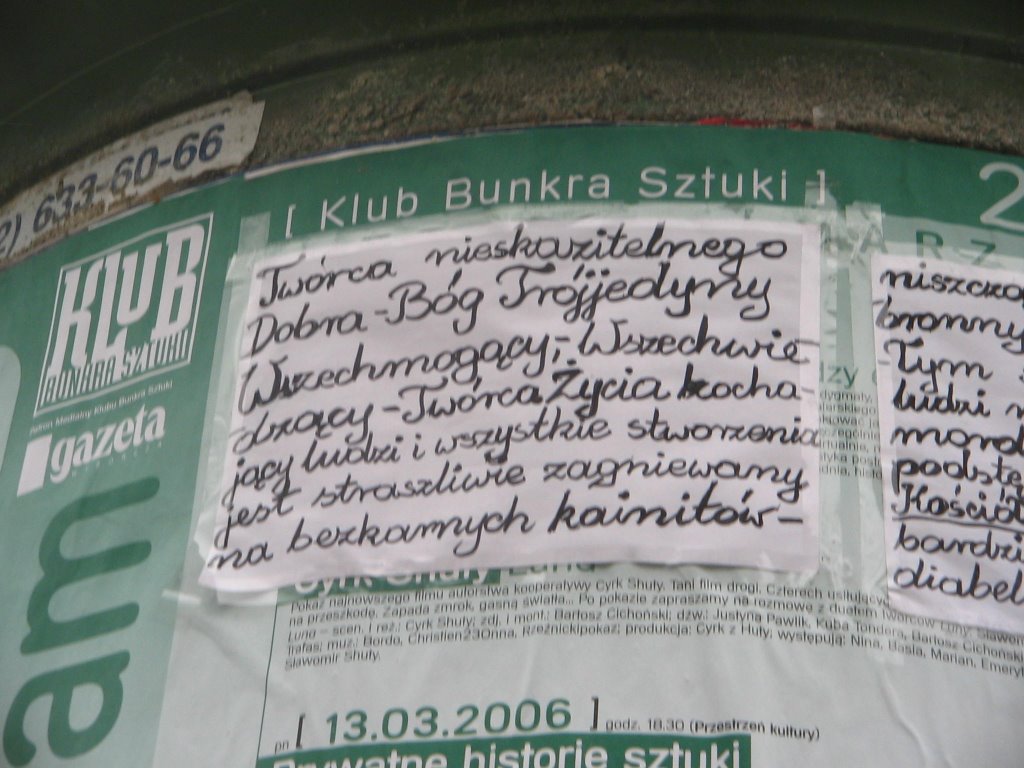 633-60-66
[ Klub Bunkra Sztuki ]
2
KLUB
BUNKRA SZTUKI
Patron Medialny Klubu Bunkra Sztuki
gazeta
am
Twórca nieskazitelnego
Dobra-Bóg Trójjedyny
Wszechmogący,-Wszechwie
dzący-Twórca Życia kocha-
jący ludzi i wszystkie stworzenia
jest straszliwie zagniewany
na bezkarnych kainitów-
niszczo
bronny
Tym
ludzi
mord
podstę
Kościół
bardzi
diabel
Pokaz najnowszego filmu autorstwa kooperatywy Cyrk Shuty. Tani film drogi. Czterech usiłujący
na przeszkodę. Zapada zmrok, gasną światła... Po pokazie zapraszamy na rozmowę z duetem Twórców
Luno – scen. i reż.: Cyrk Shuty; zdj. i mont.: Bartosz Cichoński; dźw.: Justyna Pawlik, Kuba Tondera, Bartosz Cichoński
rafas; muz.: Bordo, Christien23Onna, Rzeźnickipokaz; produkcja: Cyrk z Huty; występują: Nina, Basia, Marian, Emeryt
Sławomir Shuty.
pn [ 13.03.2006 ] godz. 18.30 (Przestrzeń kultury)
Prywatne historie sztuki